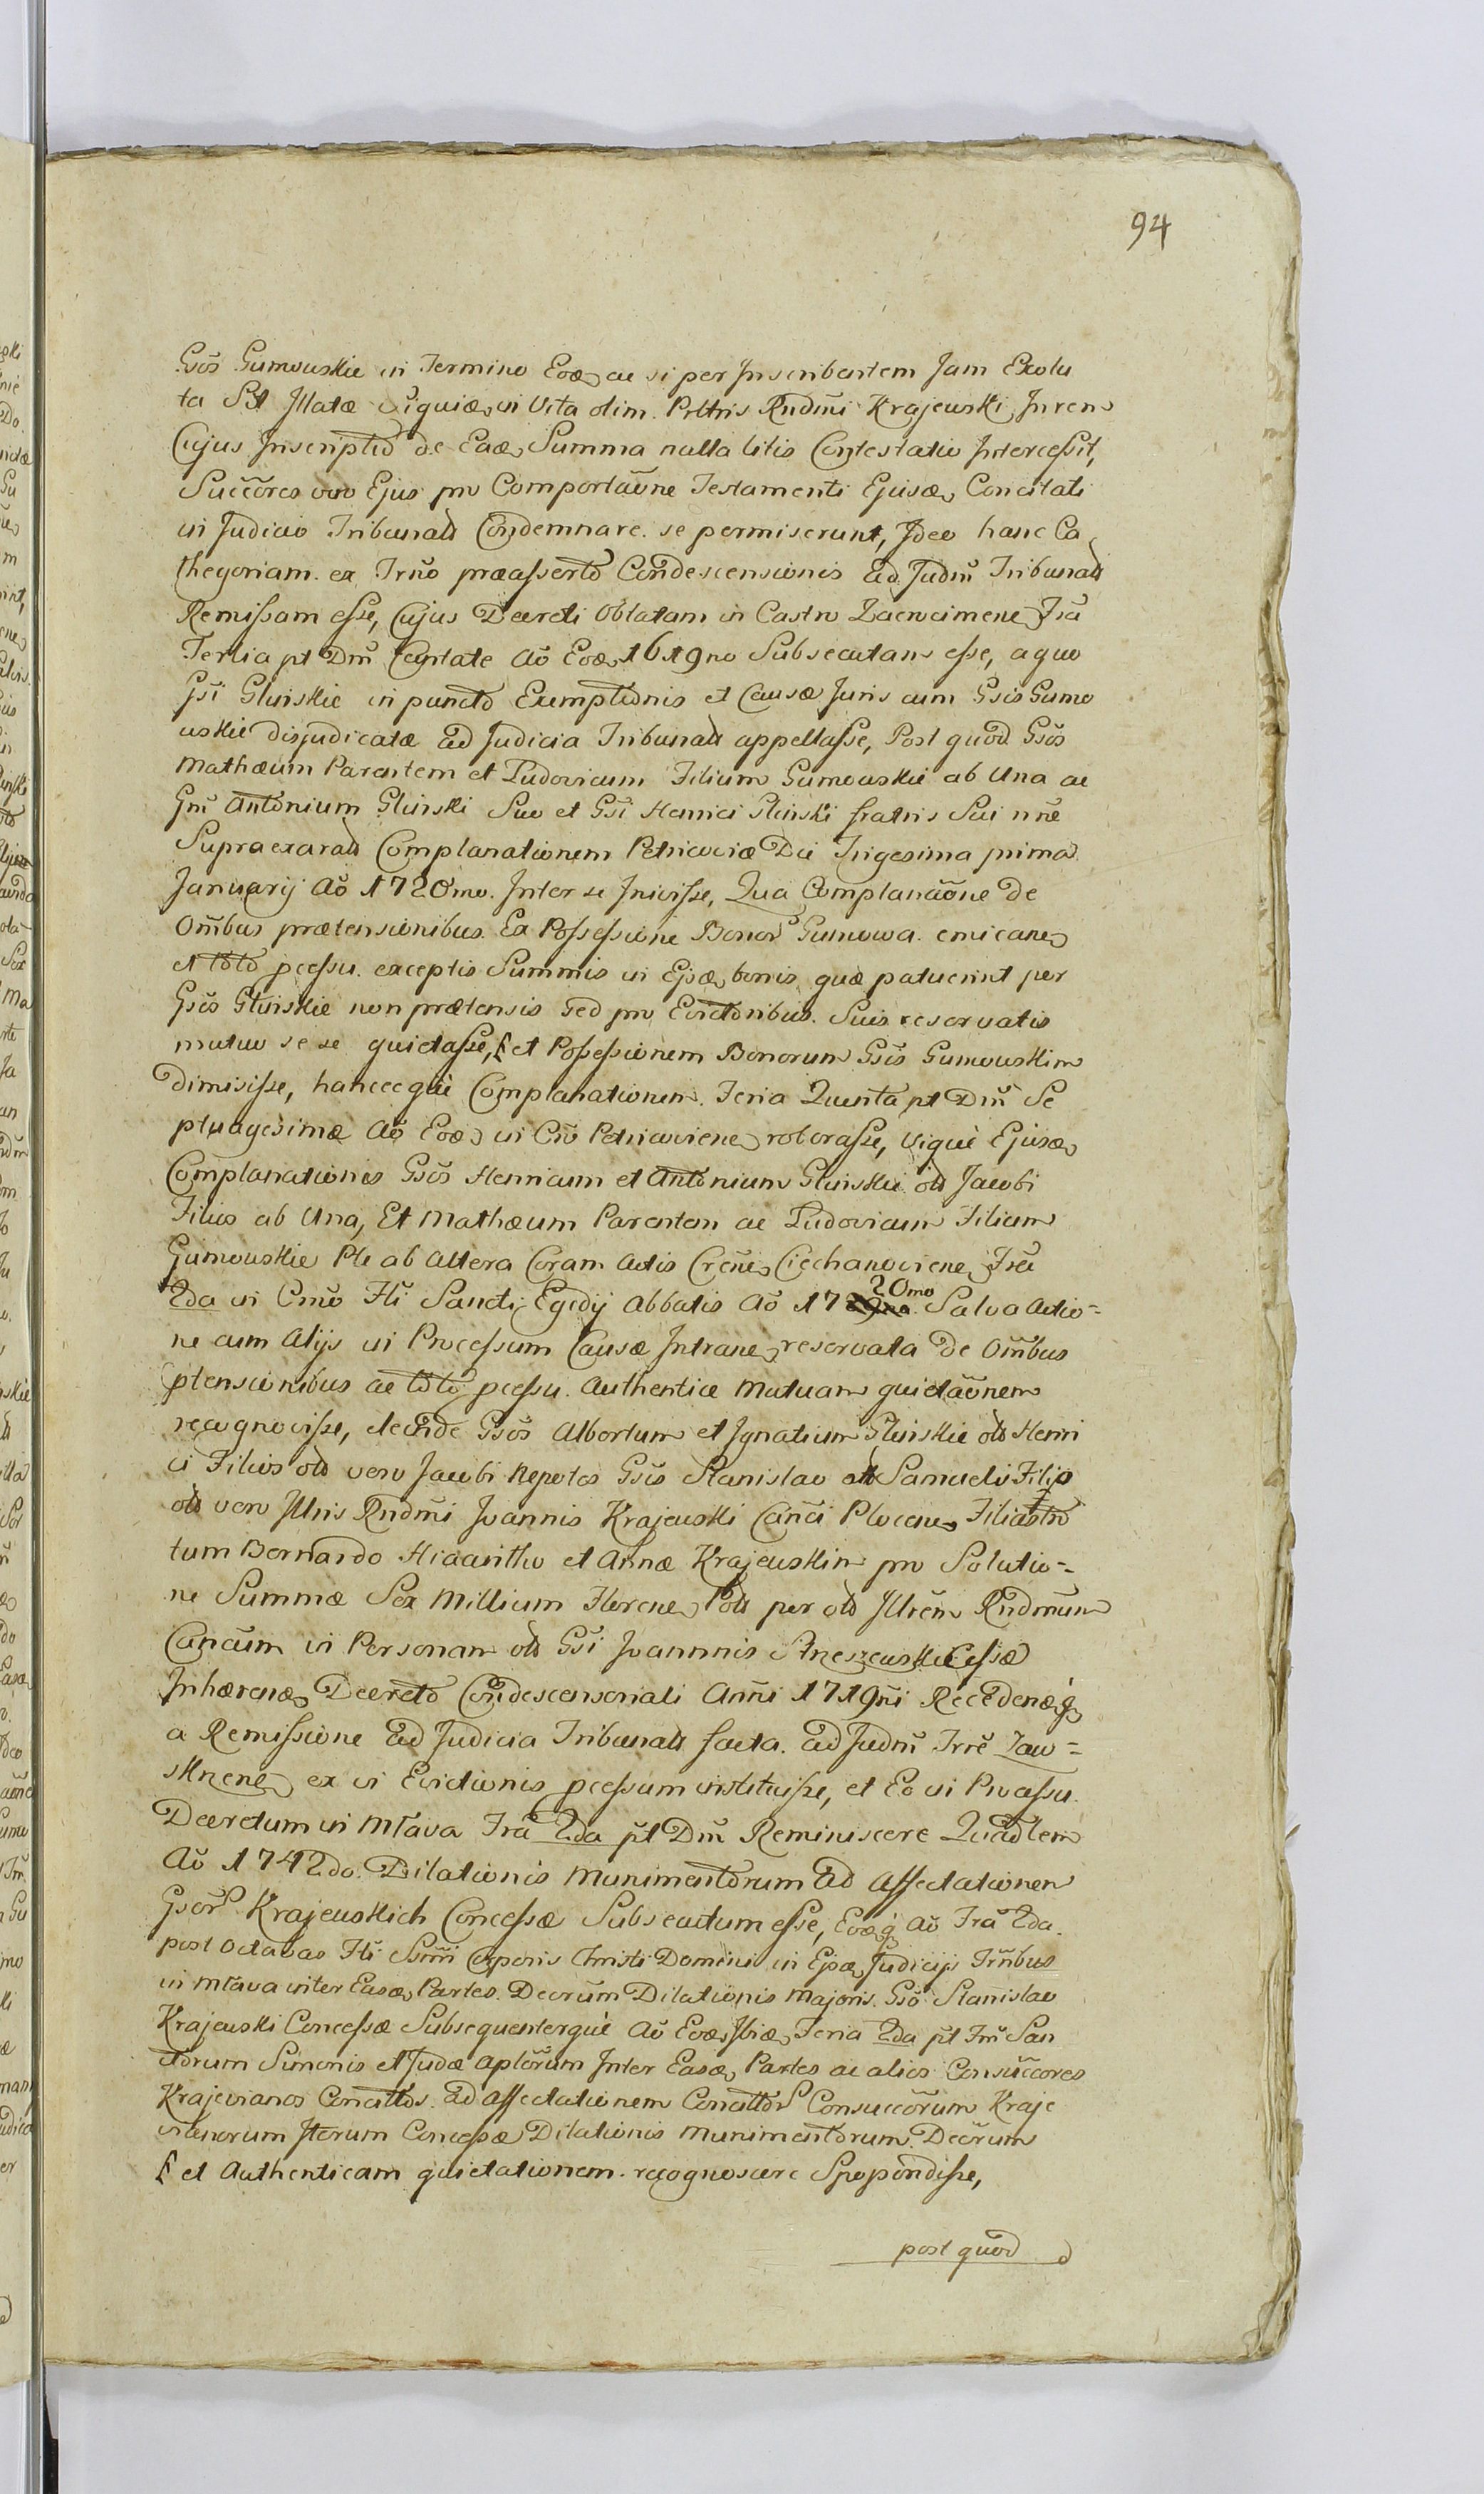 94
Gsōs Gumowskie in Termino Eoæ ac si per Inscribentem Jam Exolu
ta Sit Illatæ in Vita olim Rndmi Krajewski, In rem
Cujus Inscriptio de Eadē Summa nulla litis Contestatio Intercessit,
Succōres vero Ejus pro Comportaōne Testamenti Ejusdē Concitati
in Judicio Tribunali Condemnare se permiserunt, Ideo hanc Ca
thegoriam ex Trno præasserto Condescensionis Ad Judm Tribunali
Remissam esse, Cujus Decreti Oblatam in Castro Zacrocimen
Tertia pt Dm Aō 1619no Subsecutam esse, a quo
Gsi Glinskie in puncto Exemptionis et Causæ Juris cum Gsis Gumo
wskie disjudicatæ Ad Judicia Tribunali appellasse, Post quod Gsōs
Mathæum Parentem et Ludovicum Filium Gumowskie ab Una ac
Gm Antonium Glinski Suo et Gsi Henrici Glinski fratris Sui nne
Supraexarati Complanationem Petricoviæ Die Trigesima prima
Januarij Aō 1720mo. Inter se Inivisse, Qua Complanaōne De
Ombus prætensionibus Ex Possessione Bonor Gumowa emicane
et toto pcessu exceptis Summis in bonis quæ patuerint per
Gsōs Glinskie non prætensis sed pro Evictoribus Suis reservatis
mutuo se se quietasse, [et Possessionem Bonorum Gsis Gumowskim
Dimisisse, hancce què Complanationem Feria Quinta pt Dm Se
ptuagesimæ Aō in Petricoviene roborasse, vique Ejusdē
Complanationis Gsōs Henricum et Antonium Glinskie old Jacobi
Filios ab Una, Et Mathæum Parentem ac Ludovicum Filium
Gumowskie Pte ab Altera Coram Actis Ciechanoviene Fra
2da in Cmo Fti Sancti Egidij Abbatis Aō 17 20mo Salva Actio=
ne cum Alijs in Processum Causæ Intrane reservata De Ombus
ptensionibus ac toto pcessu Authentice Mutuam quietaōnem
recognovisse, deinde Gsōs Albertum et Ignatium Glinskie old Henri
ci Filios old vero Jacobi Nepotes Gsis Stanislao old Samueli Filio
old vero Illris Rndmi Joannis Krajewski Canci Plocene Filiastro
tum Bernardo Hiacintho et Annæ Krajewskim pro Solutio=
ne Summæ Sex Millium Florene Poli per old Illrem Rndmum
Cancum in Personam old Gsi Joannnis Cessæ
Inhærene Decreto Condescensoriali Anni 1719ni Recedene
a Remissione Ad Judicia Tribunali facta ad Judm Trre Zaw=
skrzene ex vi Evictionis pcessum instituisse, et Eo in Processu
Decretum in Mlava Fra 2da pt Dm Reminiscere Quadlem
Aō 1742do. Dilationis Munimentorum Ad Affectationem
Gsor Krajewskich Concessæ Subsecutum esse, Aō Fra 2da
post Octavas Fti Ssmi Corporis Christi Domini in Judicijs Trribus
in Mlava inter Easdē Partes Decrum Dilationis Majoris Gsō Stanislao
Krajewski Concessæ Subsequenterquè Aō Feria 2da pt Fm San
ctorum Simonis et Judæ Aplōrum Inter Easdē Partes ac alios Consuccores
Krajevianos Concittos ad affectationem Concittor Consuccōrum Kraje
vianorum Iterum Concessæ Dilationis Munimentorum Decrum
[ et Authenticam quietationem recognoscere Spopondisse,
post quod